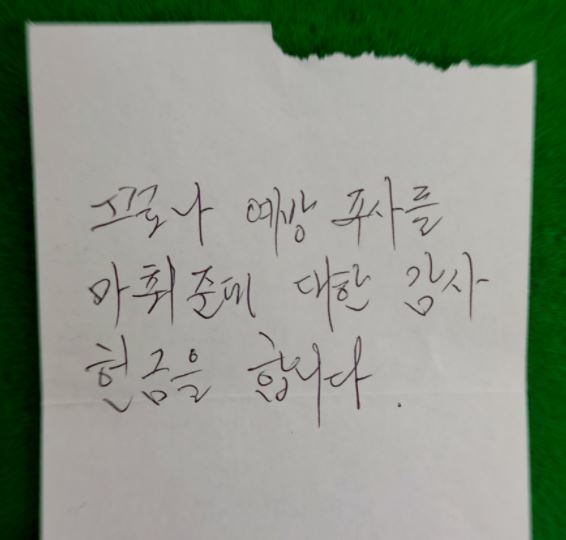 코로나 예방 주사를
마춰준데 대한 감사
헌금을 합니다.